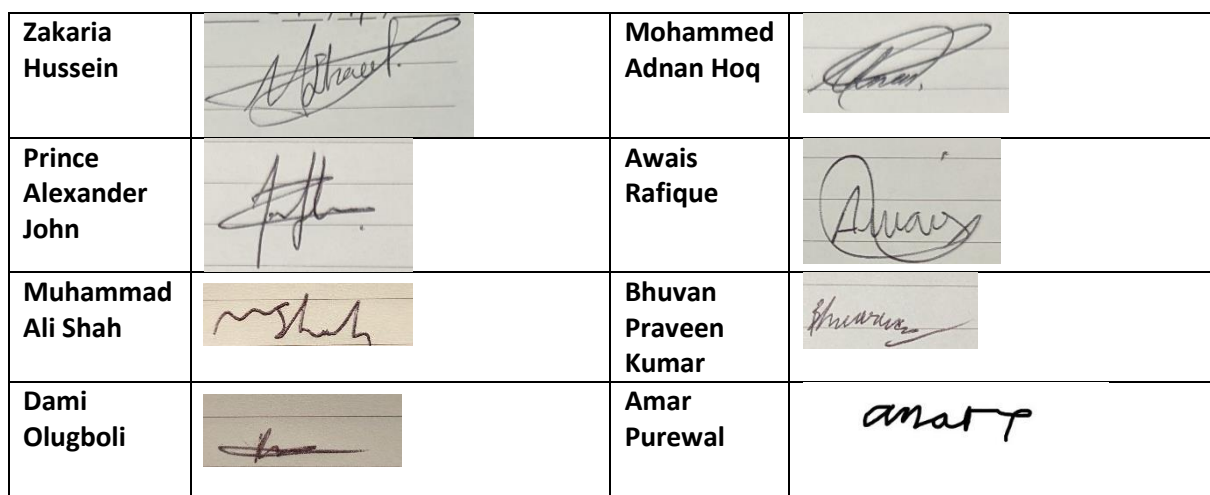 Zakaria
Hussein
Mohammed
Adnan Hoq
Prince
Alexander
John
Awais
Rafique
Awais
Muhammad
Ali Shah
MShah
Bhuvan
Praveen
Kumar
Bhuvan
Dami
Olugboli
Amar
Purewal